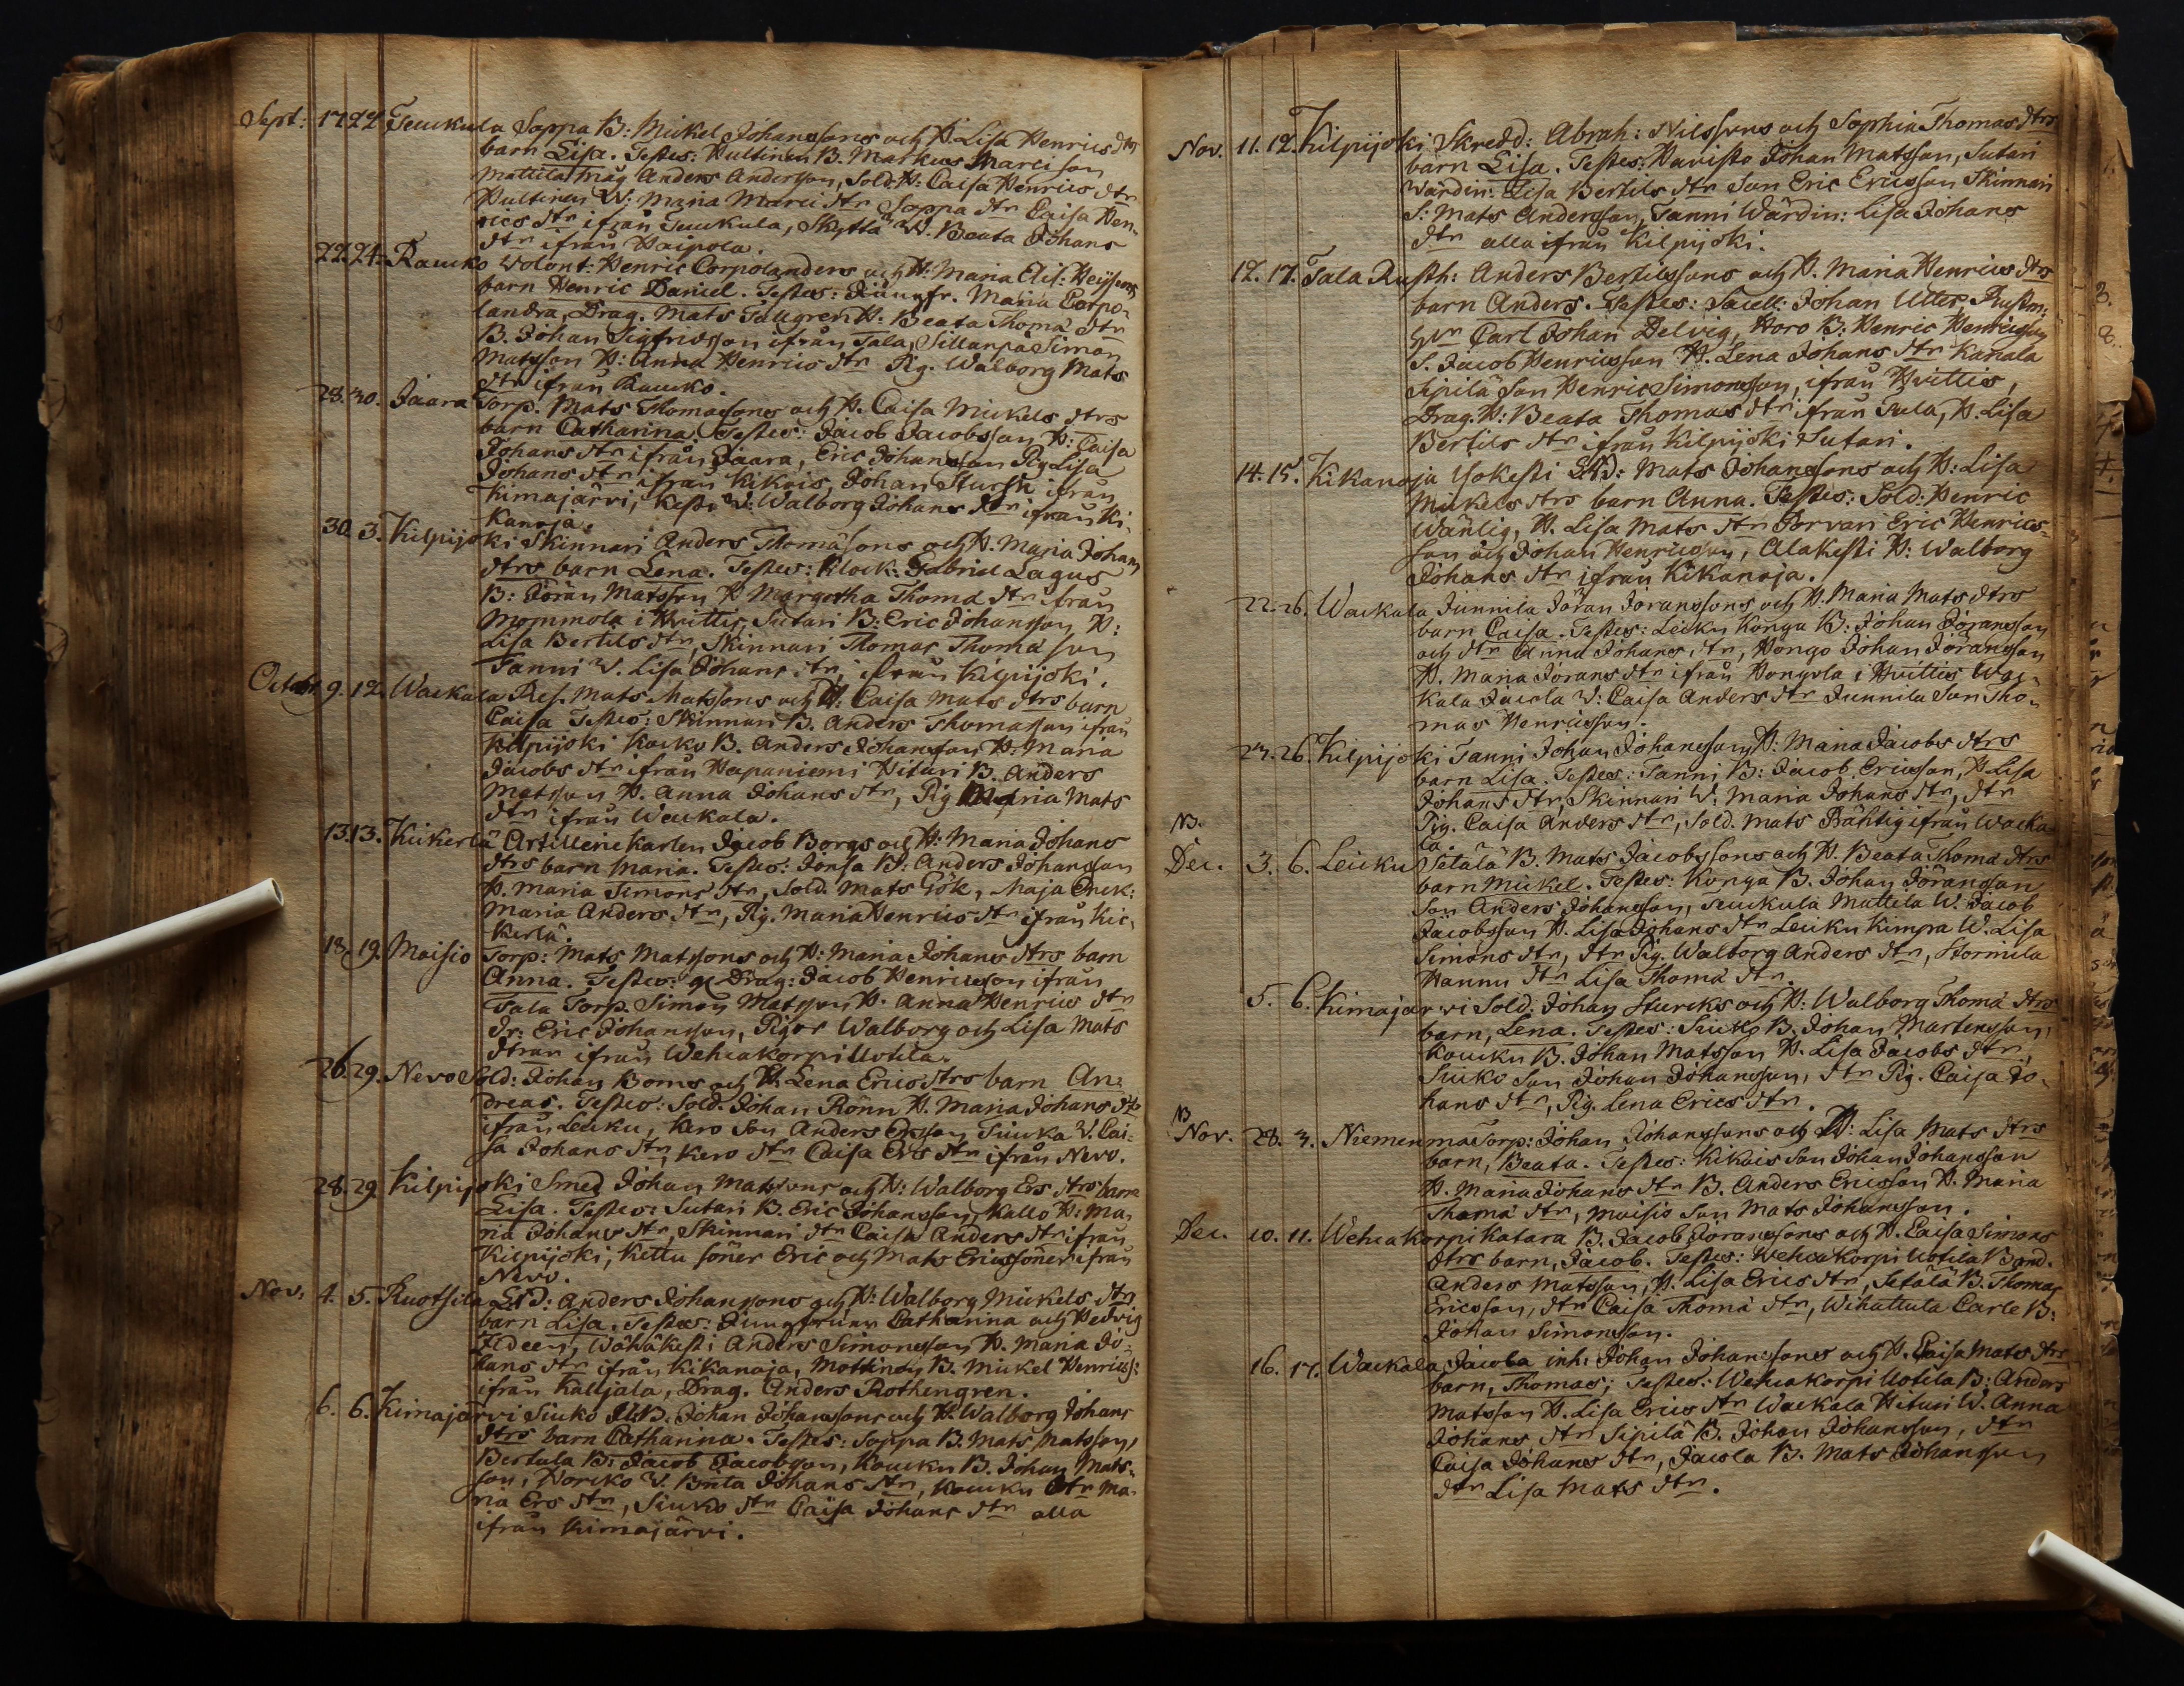 Sept: 17 22 Seuukula Soppa B: Mickel Johanssons och H. Lisa Henrics dtrs
barn Lisa. Testes: Hultinen B. Markus Marci son
Mattila Måg Anders Andersson, Sold: H: Caisa Henrics dtr
Hultinen W: Maria Marci dtr Soppa dtr Caisa Hen-
rics dtr ifrån Seuukula, Skyttä W. Beata Johans
dtr ifrån Haipola.
22. 24. Raucko Wolont: Henric Corpolanders och H: Maria Elis:
barn Henric Daniel. Testes: Jungfr. Maria Corpo-
landra, Drag. Mats Tallgren H. Beata Thomä dtr
B. Johan Sigfridsson ifrån Sala, Sillanpä Simon
Matsson H: Anna Henrics dtr Pig. Walborg Mats
dtr ifrån Raucko.
28. 30. Jaara Torp. Mats Thomassons och H. Caisa Mickels dtrs
barn Catharina. Testes: Jacob Jacobsson H: Caisa
Johans dtr ifrån Jaara, Eric Johansson Pig Lisa
Johans dtr ifrån Kikois, Johan Sturck ifrån
Kimajärvi, Kesti W: Walborg Johans dtr ifrån Ki-
kanoja.
30. 3. Kilpijoki Skinnari Anders Thomäsons och H. Maria Johans
dtrs barn Lena. Testes: Klock: Gabriel Lagus
B: Jöran Matsson H Margetha Thomä dtr ifrån
Mommola i Hvittis, Sutari B: Eric Johansson H:
Lisa Bertils dtr, Skinnari Thomas Thomä son
Tanni W. Lisa Johans dtr, ifrån Kilpijoki.
Octobr 9. 12. Waekala Ref. Mats Matssons och H: Caisa Mats dtrs barn
Caisa Testes: Skinnari B. Anders Thomasson ifrån
Kilpijoki Kocko B. Anders Johansson H: Maria
Jacobs dtr ifrån Hapaniemi Hituri B. Anders
Matsson H. Anna Johans dtr, Pig Maria Mats
dtr ifrån Waekala.
13. 13. Kiikerlä Artillerie karlen Jacob Borgs och H: Maria Johans
dtrs barn Maria. Testes: Jonsa B: Anders Johansson
H. Maria Simons dtr, Sold. Mats Gök, Maja Enck:
Maria Anders dtr, Pig. Maria Henrics dtr ifrån Kic-
kerlä.
18. 19. Moisio Torp: Mats Matssons och H: Maria Johans dtrs barn
Anna. Testes: Drag: Jacob Henricsson ifrån
Sala Torp. Simon Matsson H. Anna Henrics dtr
Dr: Eric Johansson, Pigor Walborg och Lisa Mats
dtran ifrån Wehcakorpi Uotila.
26. 29. Nevo Sold: Johan Boms och H. Lena Erics dtrs barn An-
dreas. Testes: Sold. Johan Rönn H. Maria Johans dtr
ifrån Leuku, Kero son Anders Ersson Siucka W. Cai-
sa Johans dtr, Kero dtr Caisa Ers dtr ifrån Nevo.
28. 29 Kilpijoki Smed Johan Matssons och H: Walborg Ers dtrs barn
Lisa. Testes: Sutari B. Eric Johansson, Kallo H: Ma-
ria Johans dtr, Skinnari dtr Caisa Anders dtr ifrån
Kilpijoki, Kittu söner Eric och Mats Ericssöner ifrån
Nevo.
Nov: 4. 5. Ruotsila LtD: Anders Johanssons och H: Walborg Mickels dtrs
barn Lisa. Testes: Jungfruer Catharina och Hedvig
Ildeen, Wähäkesti Anders Simonsson H. Maria Jo-
hans dtr ifrån Kikanoja, Mottinen B. Mickel Henricss:
ifrån Kaujala, Drag. Anders Rothengren.
6. 6. Kimajärvi Siuko B. Johan Johanssons och H. Walborg Johans
dtrs barn Catharina. Testes: Soppa B. Mats Matsson,
Bertula B: Jacob Jacobsson, Koucku B. Johan Mats-
son, Norcko W. Brita Johans dtr, Koucku dtr Ma-
ria Ers dtr, Siuko dtr Caisa Johans dtr alla
ifrån Kimajärvi.
Nov. 11. 12. Kilpijoki Skredd: Abrah: Nilssons och Sophia Thomas dtrs
barn Lisa. Testes: Havisto Johan Matsson, Sutari
Wärdin: Lisa Bertils dtr Son Eric Ericsson Skinnari
S: Mats Andersson, Tanni Wärdin: Lisa Johans
dtr alla ifrån Kilpijoki.
12. 17. Sala Rusth: Anders Bertilssons och H. Maria Henrics dtrs
barn Anders. Testes: Sacell: Johan Utter,
Carl Johan Delvig, Horo B: Henric Henricsson
S. Jacob Henricsson H. Lena Johans dtr Kanala
Sipilä son Henric Simonsson, ifrån Hvittis,
Drag. H: Beata Thomas dtr ifrån Sala, H. Lisa
Bertils dtr ifrån Kilpijoki Sutari.
14. 15. Kikanoja Yokesti LtD: Mats Johanssons och H: Lisa
Mickels dtrs barn Anna. Testes: Sold: Henric
Wänlig, H. Lisa Mats dtr Porvari Eric Henrics-
son och Johan Henricsson, Alakesti H: Walborg
Johans dtr ifrån Kikanoja.
22. 26. Waekala Junnila Jöran Joranssons och H. Maria Mats dtrs
barn Caisa. Testes: Leuku Konga B: Johan Joransson
och dtr Anna Johans dtr, Hongo Johan Joransson
H. Maria Jorans dtr ifrån Hongola i Hvittis Wae-
kala Jacola W: Caisa Anders dtr Junnila Son Tho-
mas Henricsson.
24. 26. Kilpijoki Tanni Johan Johansson H: Maria Jacobs dtrs
barn Lisa. Testes: Tanni B: Jacob Ericsson, H. Lisa
Johans dtr, Skinnari W: Maria Johans dtr, dtr
Pig. Caisa Anders dtr, Sold. Mats Bähtig ifrån Waeka
la.
NB.
Dec. 3. 6. Leuku Setälä B. Mats Jacobssons och H. Beata Thomä dtrs
barn Mickel. Testes: Konga B. Johan Jöransson
Son Anders Johansson, Seuukula Mattila W. Jacob
Jacobsson H. Lisa Johans dtr Leuku Kimpa W. Lisa
Simons dtr, dtr Pig. Walborg Anders dtr, Stormila
Hannu dtr Lisa Thomä dtr.
5. 6. Kimajärvi Sold. Johan Stureks och H: Walborg Thomä dtrs
barn, Lena. Testes: Siuko B. Johan Martensson,
Koucku B. Johan Matsson H. Lisa Jacobs dtr,
Siuko son Johan Johansson, dtr Pig. Caisa Jo-
hans dtr, Pig. Lena Erics dtr.
NB
Nov. 28. 3. Niemenmaa Torp: Johan Johanssons och H: Lisa Mats dtrs
barn, Beata. Testes: Kikois son Johan Johansson
H. Maria Johans dtr B. Anders Ericsson H. Maria
Thomä dtr, Moisio son Mats Johansson.
Dec. 10. 11. Wehcakorpi Katara B. Jacob Joranssons och H. Caisa Simons
dtrs barn, Jacob. Testes: Wehcakorpi Uotila Bond.
Anders Matsson, H. Lisa Erics dtr, Setälä B. Thomas
Ericsson, dtr Caisa Thomä dtr, Wihattula Carle B:
Johan Simonsson.
16. 17. Waekala Jacola inh: Johan Johanssons och H. Caisa Mats dtrs
barn, Thomas; Testes: Wehcakorpi Uotila B: Anders
Matsson H. Lisa Erics dtr Waekala Hituri W. Anna
Johans dtr Sipilä B. Johan Johansson, dtr
Caisa Johans dtr, Jacola B. Mats Johansson
dtr Lisa Mats dtr.